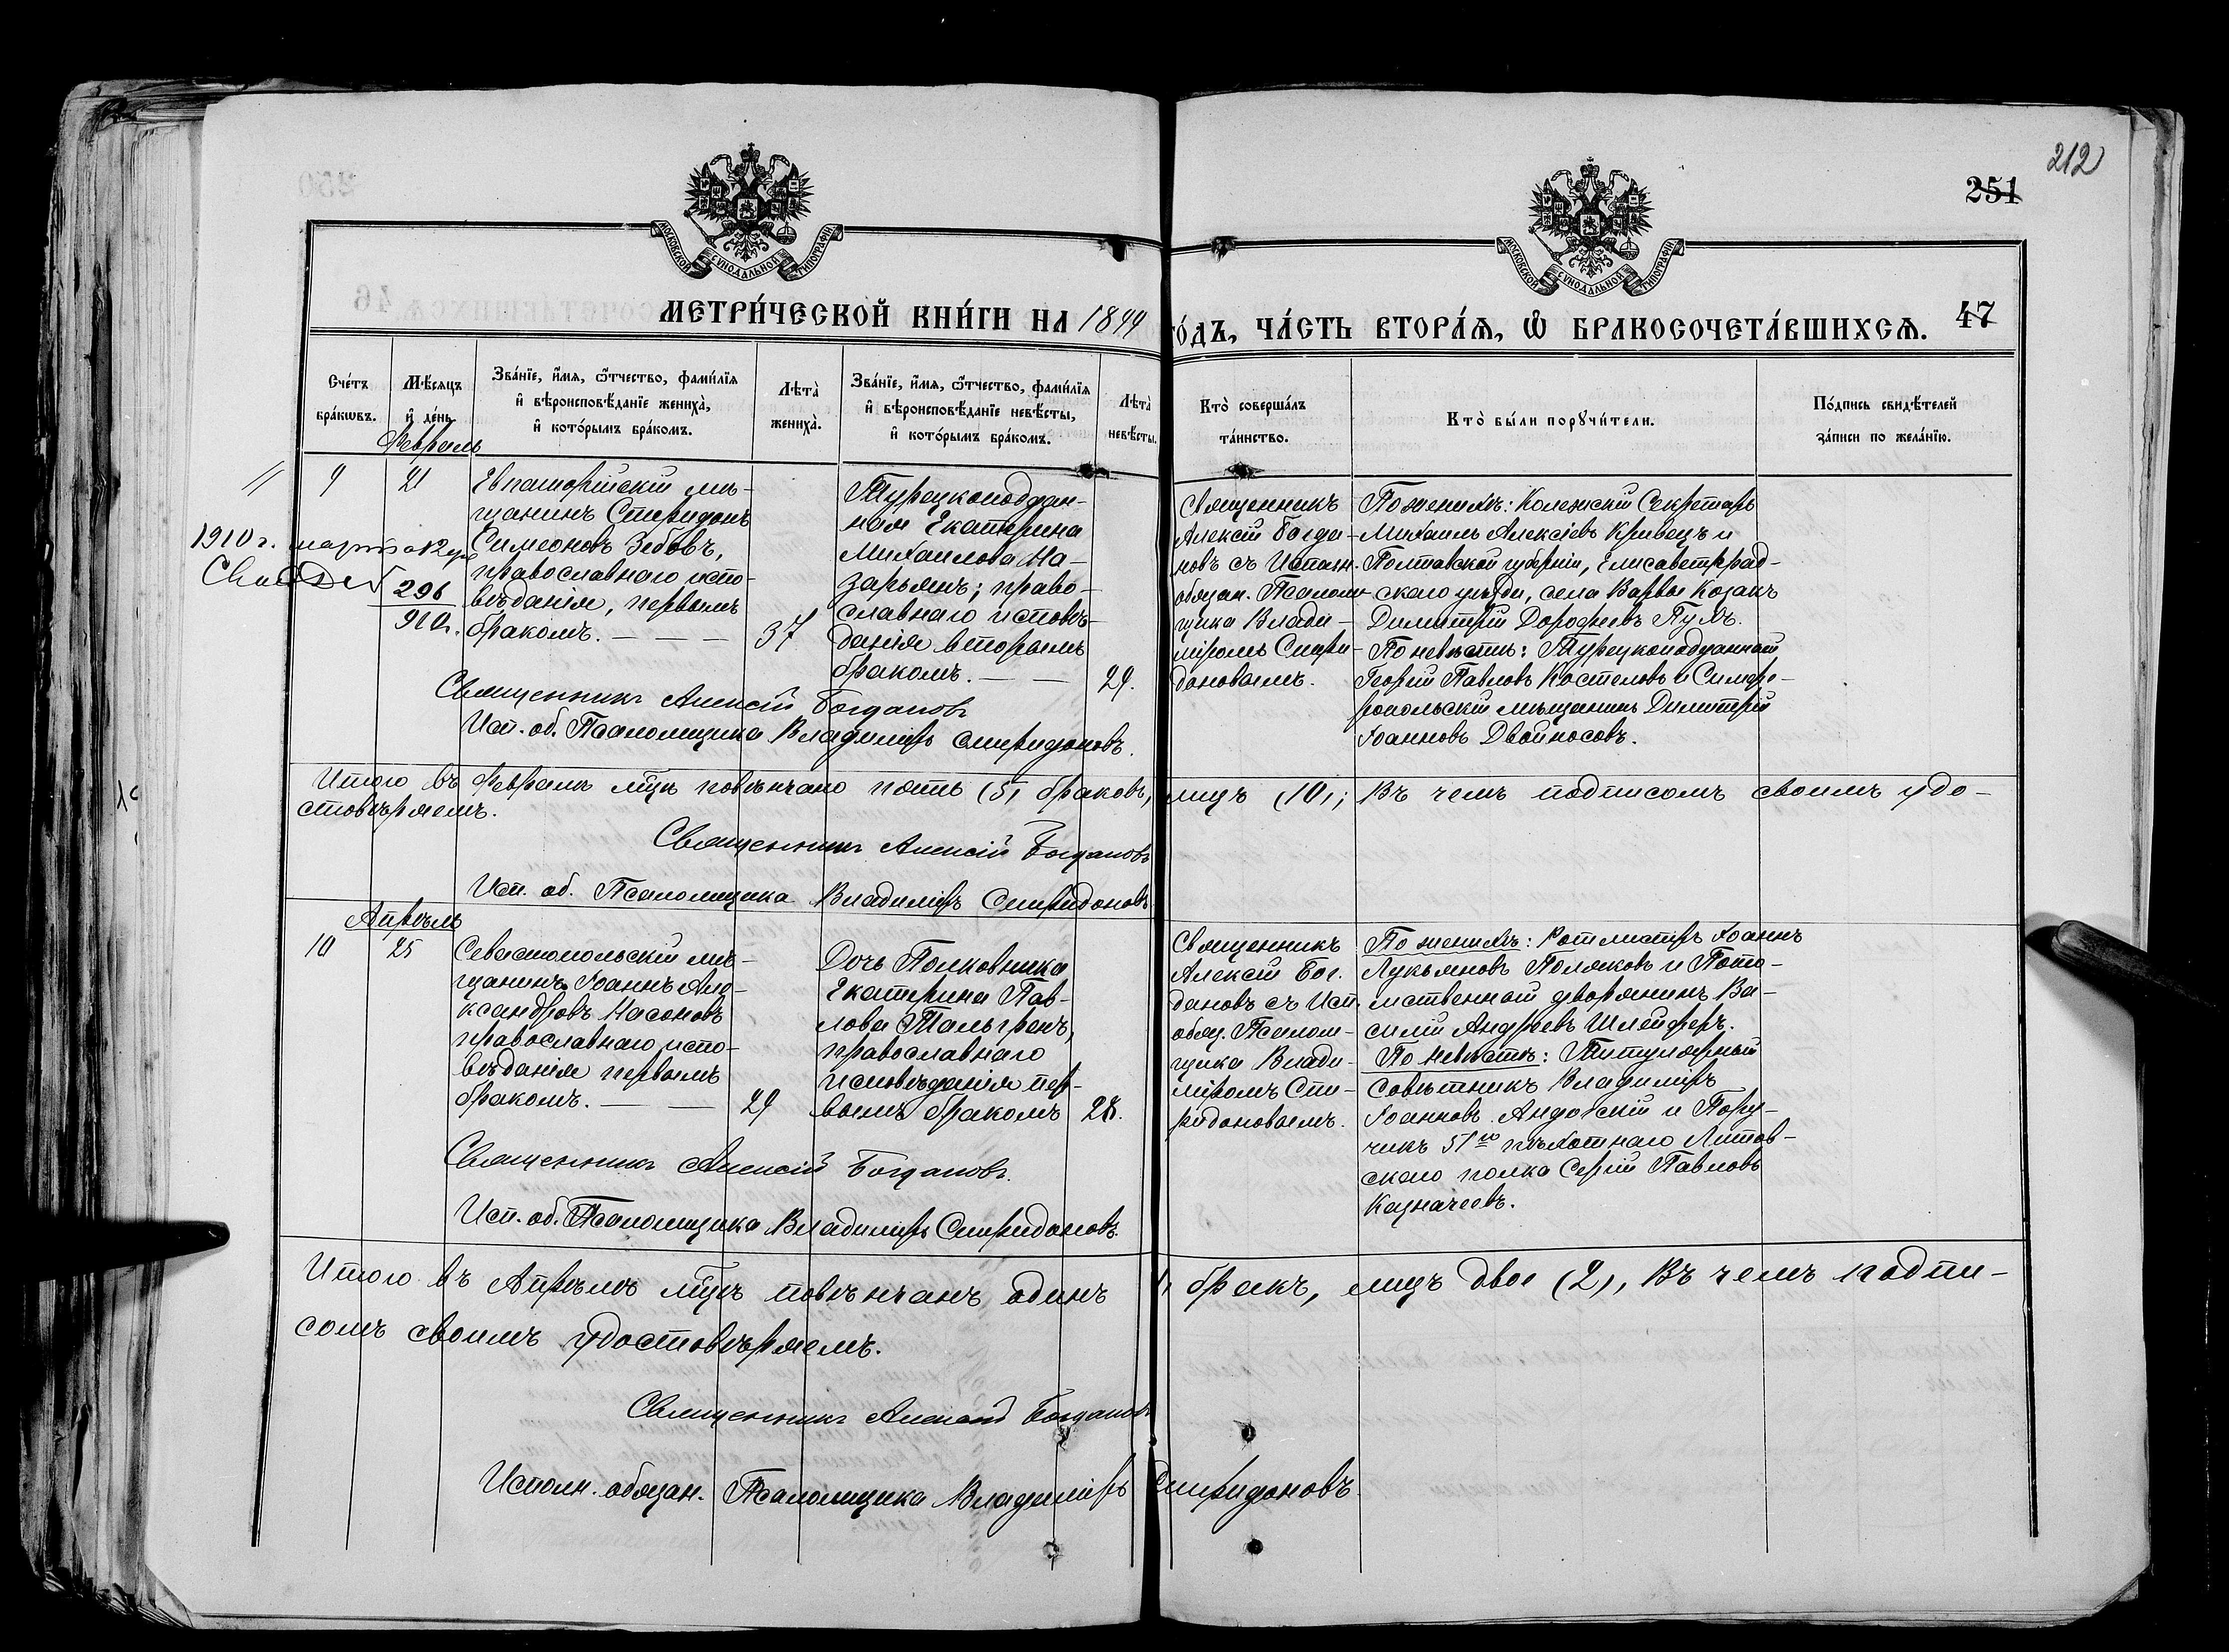 212
251
МОСКОВСКОЙ СѴНОДАЛЬНОЙ ТИПОГРАФІИ
МОСКОВСКОЙ СѴНОДАЛЬНОЙ ТИПОГРАФІИ
МЕТРИ́ЧЕСКОЙ КНИ́ГИ НА 1899
ГО́ДЪ, ЧА́СТЬ ВТОРА́Ѧ, Ѡ҆ БРАКОСОЧЕТА́ВШИХСѦ. 47
Сче́тъ
бра́кѡвъ.
Мѣ́сяцъ
и҆ де́нь.
Зва́нїе, и҆́мя, ѻ҆́тчество, фами́лїя
и҆ вѣроисповѣ́данїе жениха̀,
и҆ кото́рымъ бра́комъ.
Лѣ́та̀
жениха̀.
Зва́нїе, и҆́мя, ѻ҆́тчество, фами́лїя
и҆ вѣроисповѣ́данїе невѣ́сты,
и҆ кото́рымъ бра́комъ.
Лѣ́та̀
невѣ́сты.
Кто̀ соверша́лъ
та́инство.
Кто̀ бы́ли порꙋчи́тели.
По́дпись свидѣ́телей
за́писи по жела́нїю.
Февраль
9
21
1910 г. марта
296
910 г.
Евпаторійскій мѣ-
щанинъ Спиридонъ
Симеоновъ Зебовъ,
православнаго испо-
вѣданія, первымъ
бракомъ. — — —
37
Турецкоподдан-
ная Екатерина
Михаилова На-
зарьянъ; право-
славнаго исповѣ-
данія вторымъ
бракомъ. — —
29.
Священникъ
Алексій Богда-
новъ съ Исполн.
обязан. Псалом-
щика Влади-
міромъ Спири-
доновымъ.
По женихѣ: Колежскій Секретарь
Михаилъ Алексіевъ Кривецъ и
Полтавской губерніи, Елисаветград-
скаго уѣзда, села Варвы Козакъ
Димитрій Дорофеевъ Пухъ.
По невѣстѣ: Турецкоподданный
Георгій Павловъ Костеловъ и Симфе-
ропольскій мѣщанинъ Димитрій
Іоанновъ Двойносовъ.
Священникъ Алексій Богдановъ
Исп. об. Псаломщика Владиміръ Спиридоновъ.
Итого въ Февралѣ мцѣ повѣнчано пять (5) браковъ, лицъ (10); Въ чемъ подписомъ своимъ удо-
стовѣряемъ.
Священникъ Алексій Богдановъ
Исп. об. Псаломщика Владиміръ Спиридоновъ
Апрѣль
10
25
Севастопольскій мѣ-
щанинъ Іоаннъ Але-
ксандровъ Насоновъ
православнаго испо-
вѣданія первымъ
бракомъ. — —
29
Дочь Полковника
Екатерина Пав-
лова Тальгренъ,
православнаго
исповѣданія пер-
вымъ бракомъ
28.
Священникъ
Алексій Бог-
дановъ съ Исп.
обяз. Псалом-
щика Влади-
міромъ Спи-
ридоновымъ.
По женихѣ: Ротмистръ Іоаннъ
Лукьяновъ Поляковъ и Пото-
мственный дворянинъ Ва-
силій Андреевъ Шлейферъ.
По невѣстѣ: Титулярный
Совѣтникъ Владиміръ
Іоанновъ Андовскій и Пору-
чикъ 51го пѣхотнаго Литов-
скаго полка Сергій Павловъ
Казначеевъ.
Священникъ Алексій Богдановъ.
Исп. об. Псаломщика Владиміръ Спиридоновъ.
Итого въ Апрѣлѣ мцѣ повѣнчанъ одинъ 1, бракъ, лицъ двое (2), Въ чемъ подпи-
сомъ своимъ удостовѣряемъ.
Священникъ Алексій Богдановъ
Исполн. обязан. Псаломщика Владиміръ Спиридоновъ.